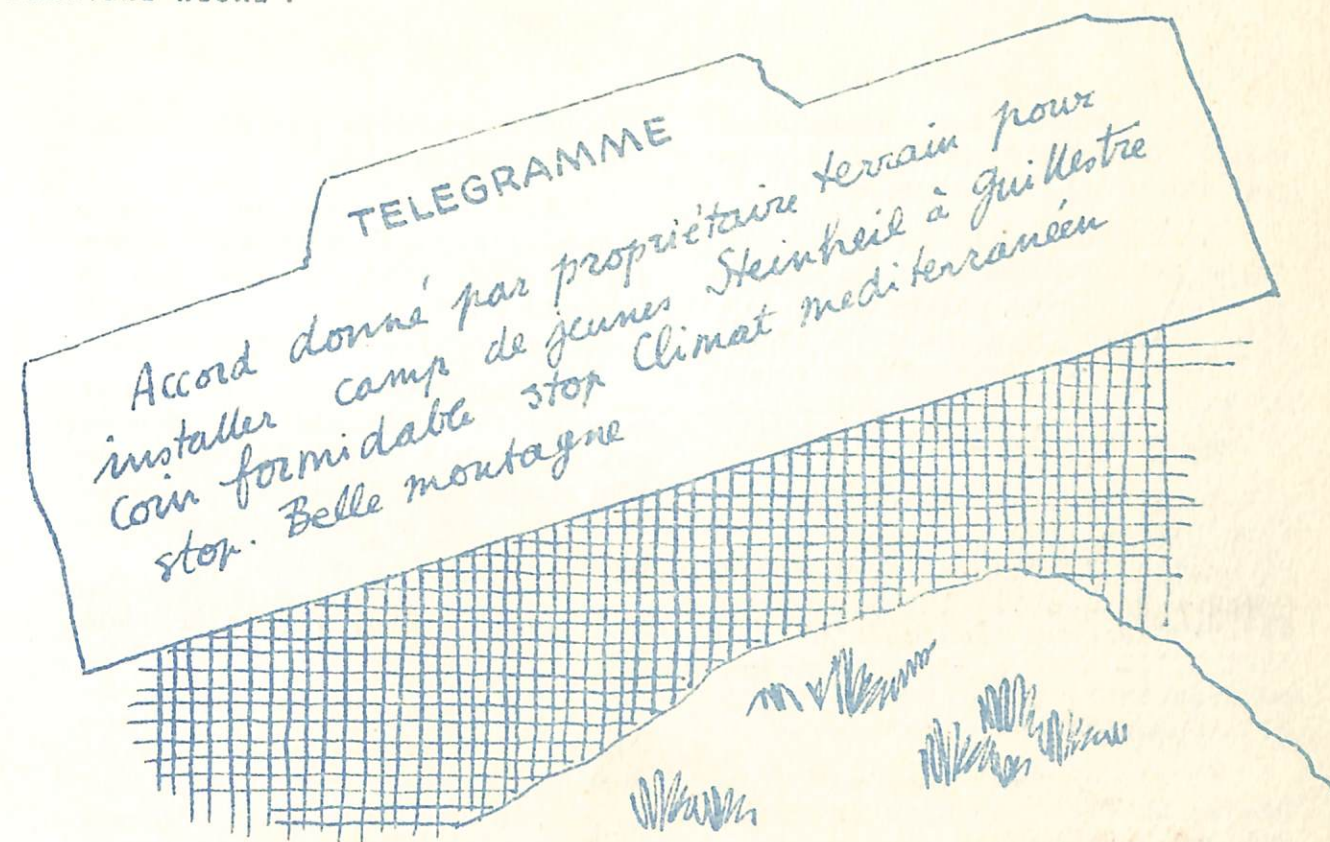 TELEGRAMME
Accord donné par propriétaire terrain pour
installer camp de jeunes Steinheil à Guillestre
Coin formidable stop Climat mediterranéen
stop. Belle montagne